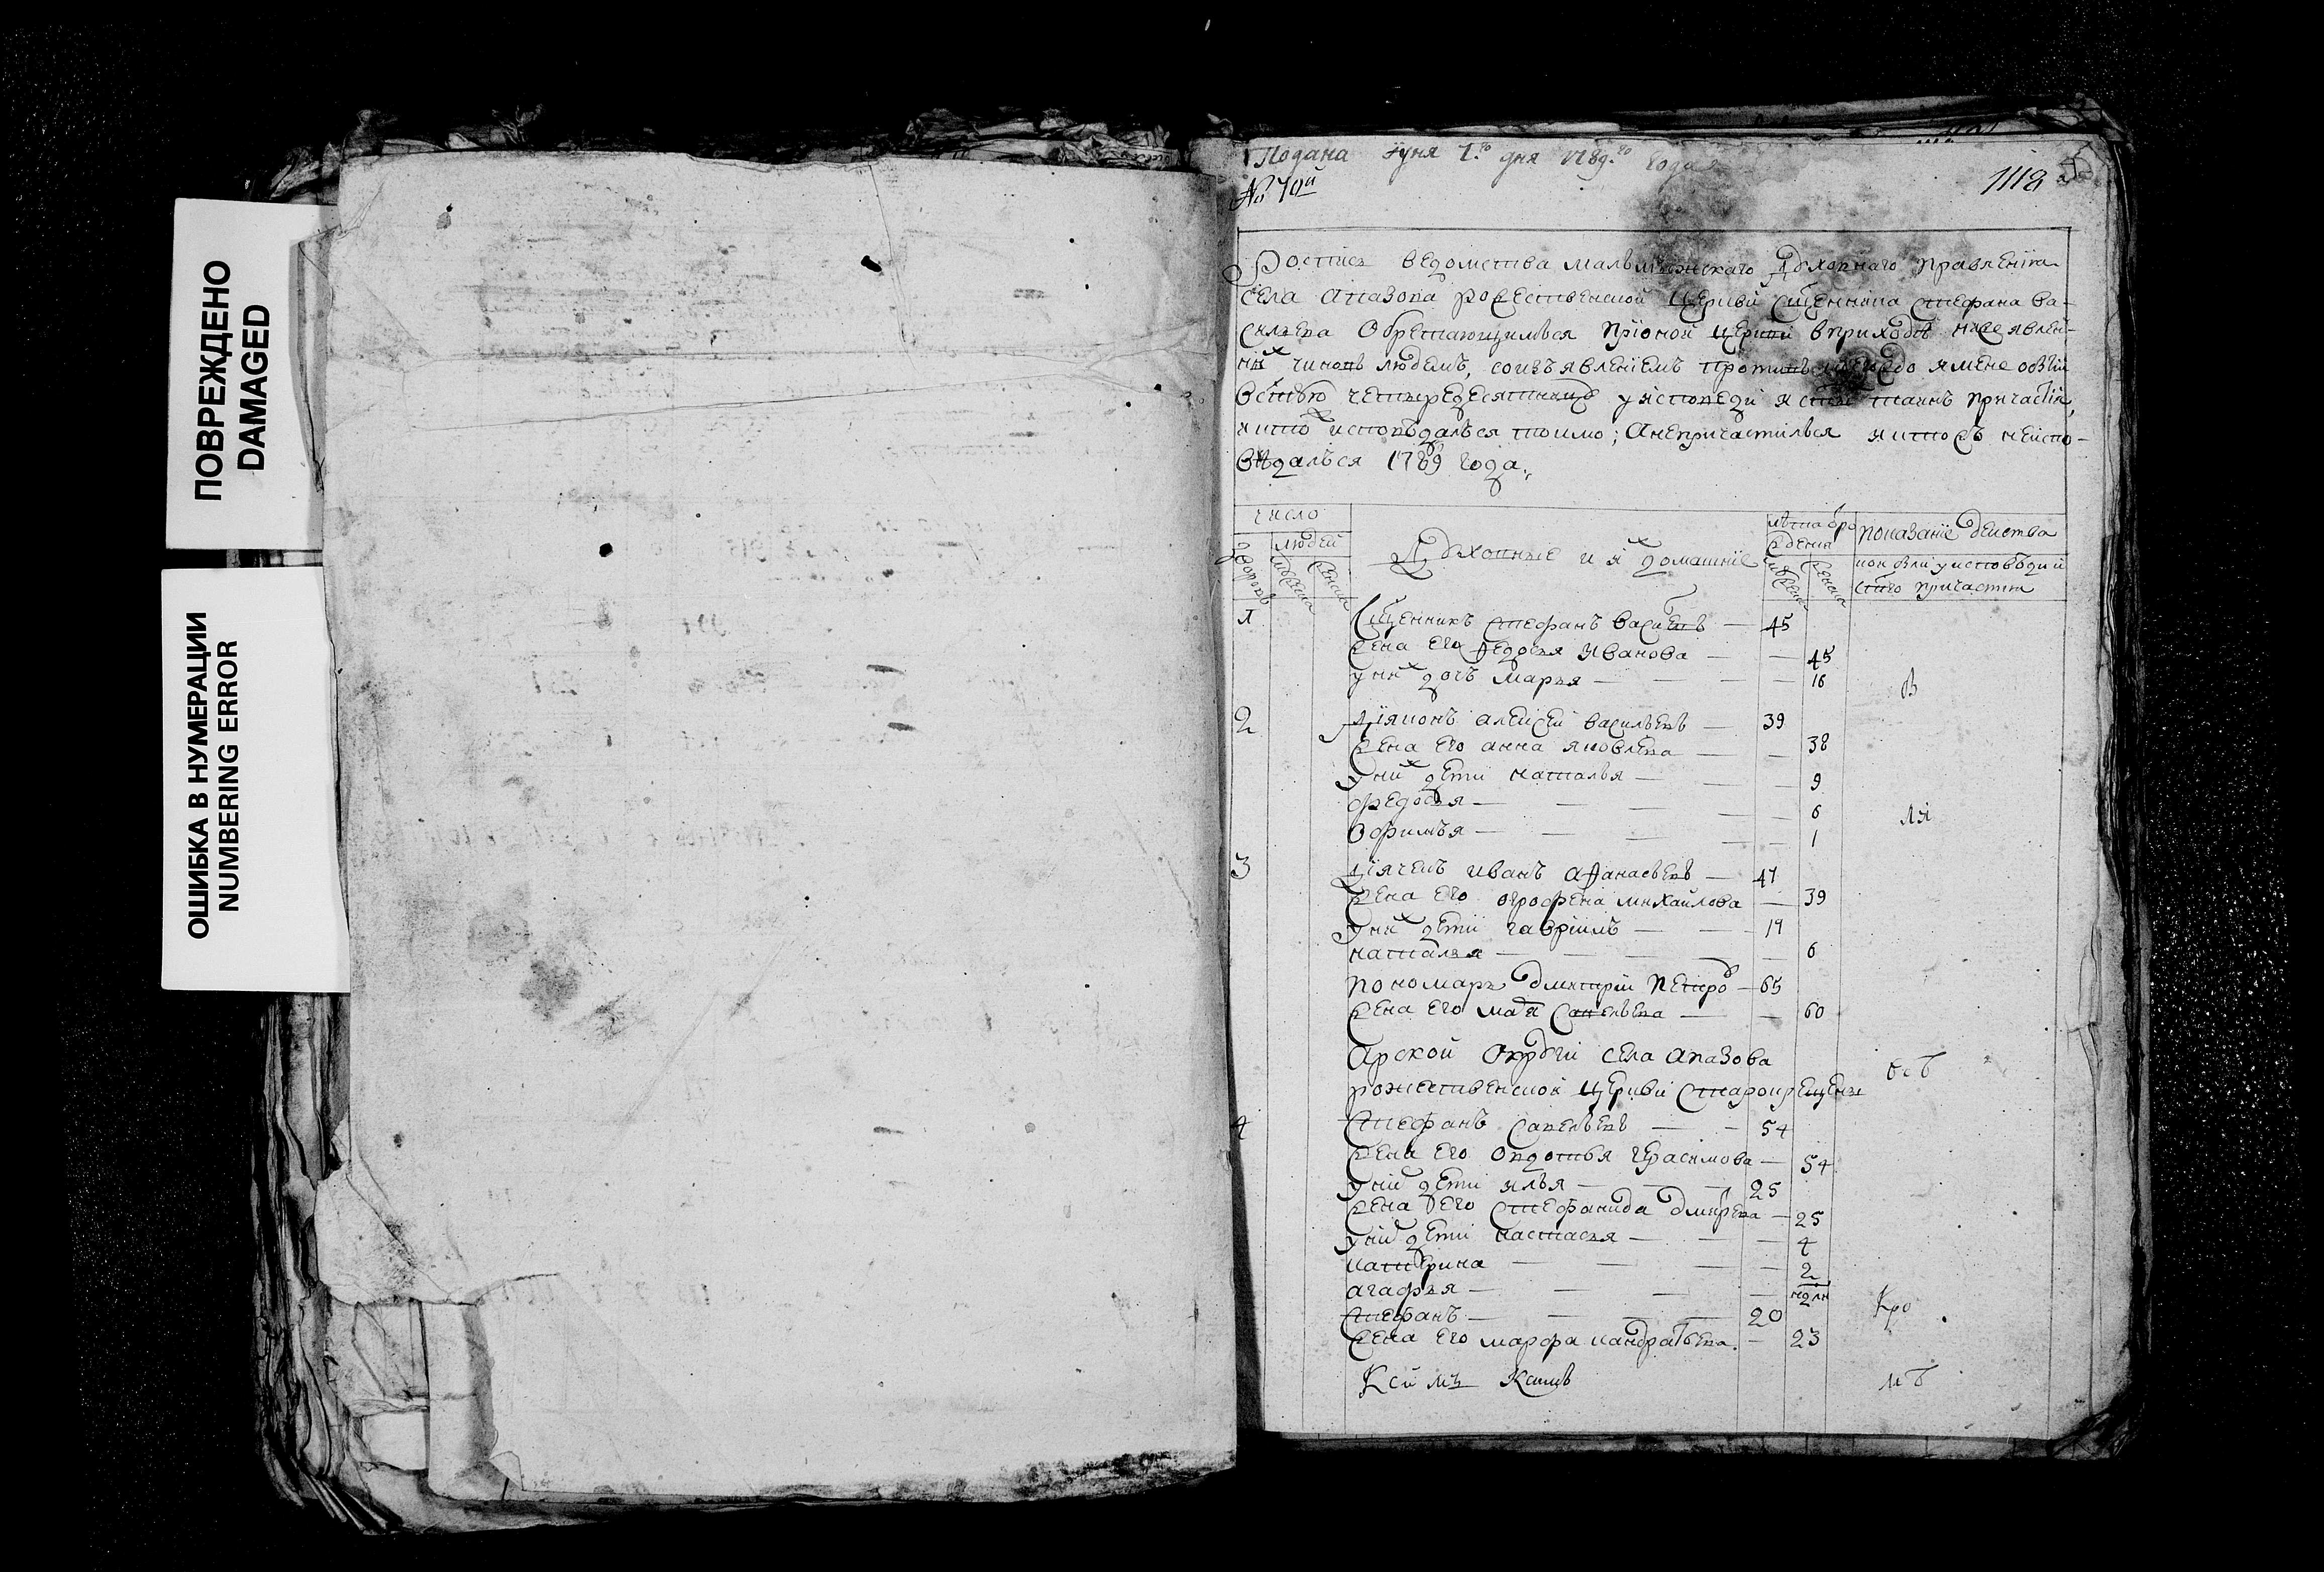 ПОВРЕЖДЕНО
DAMAGED
ОШИБКА В НУМЕРАЦИИ
NUMBERING ERROR
Подана Іуня 1го дня 1789го года
№ 70й
1118
Роспись ведомства малмыжскаго духовнаго правленія
села апазова рожественской церкви сщенника стефана ва-
сильева обретающимъся при оной церкви в приходѣ нижеявлен-
ныхъ чиновъ людемъ, со изъявленіемъ противъ
четыредесятницу у исповеди и стыхъ таинъ причастія,
и кто исповѣдалъся токмо; а не причастилъся и кто жъ не испо-
вѣдалъся 1789 года,
число
людей
дворовъ
мужеска
женска
Духовныіе и ихъ домашніе
лѣта о ро
ждения
мужеска
женска
показаніе действа
кои были у исповѣди и
стго причастия
1
Сщенникъ стефанъ василевъ — 45
жена его федосья иванова — 45
у нихъ дочь марья — 16
2
діяконъ алексей васильевъ — 39
жена его анна яковлева — 38
у нихъ дети наталья — 9
федосья — 6
офимья — 1
3
діячекъ иванъ афанасьевъ — 47
жена его огрофена михайлова — 39
у нихъ дети гавріилъ — 19
наталья — 6
пономарь дмитрій петровъ — 65
жена его савельева — 60
Арской округи села апазова
рожественской церкви старокрещены
4
Стефанъ савельевъ — 54
жена его овдотья герасимова — 54
у нихъ дети илья — 25
жена его стефанида — 25
у нихъ дети настасья — 4
катерина — 2
агафья —
стефанъ — 20
жена его марфа кандратьева — 23